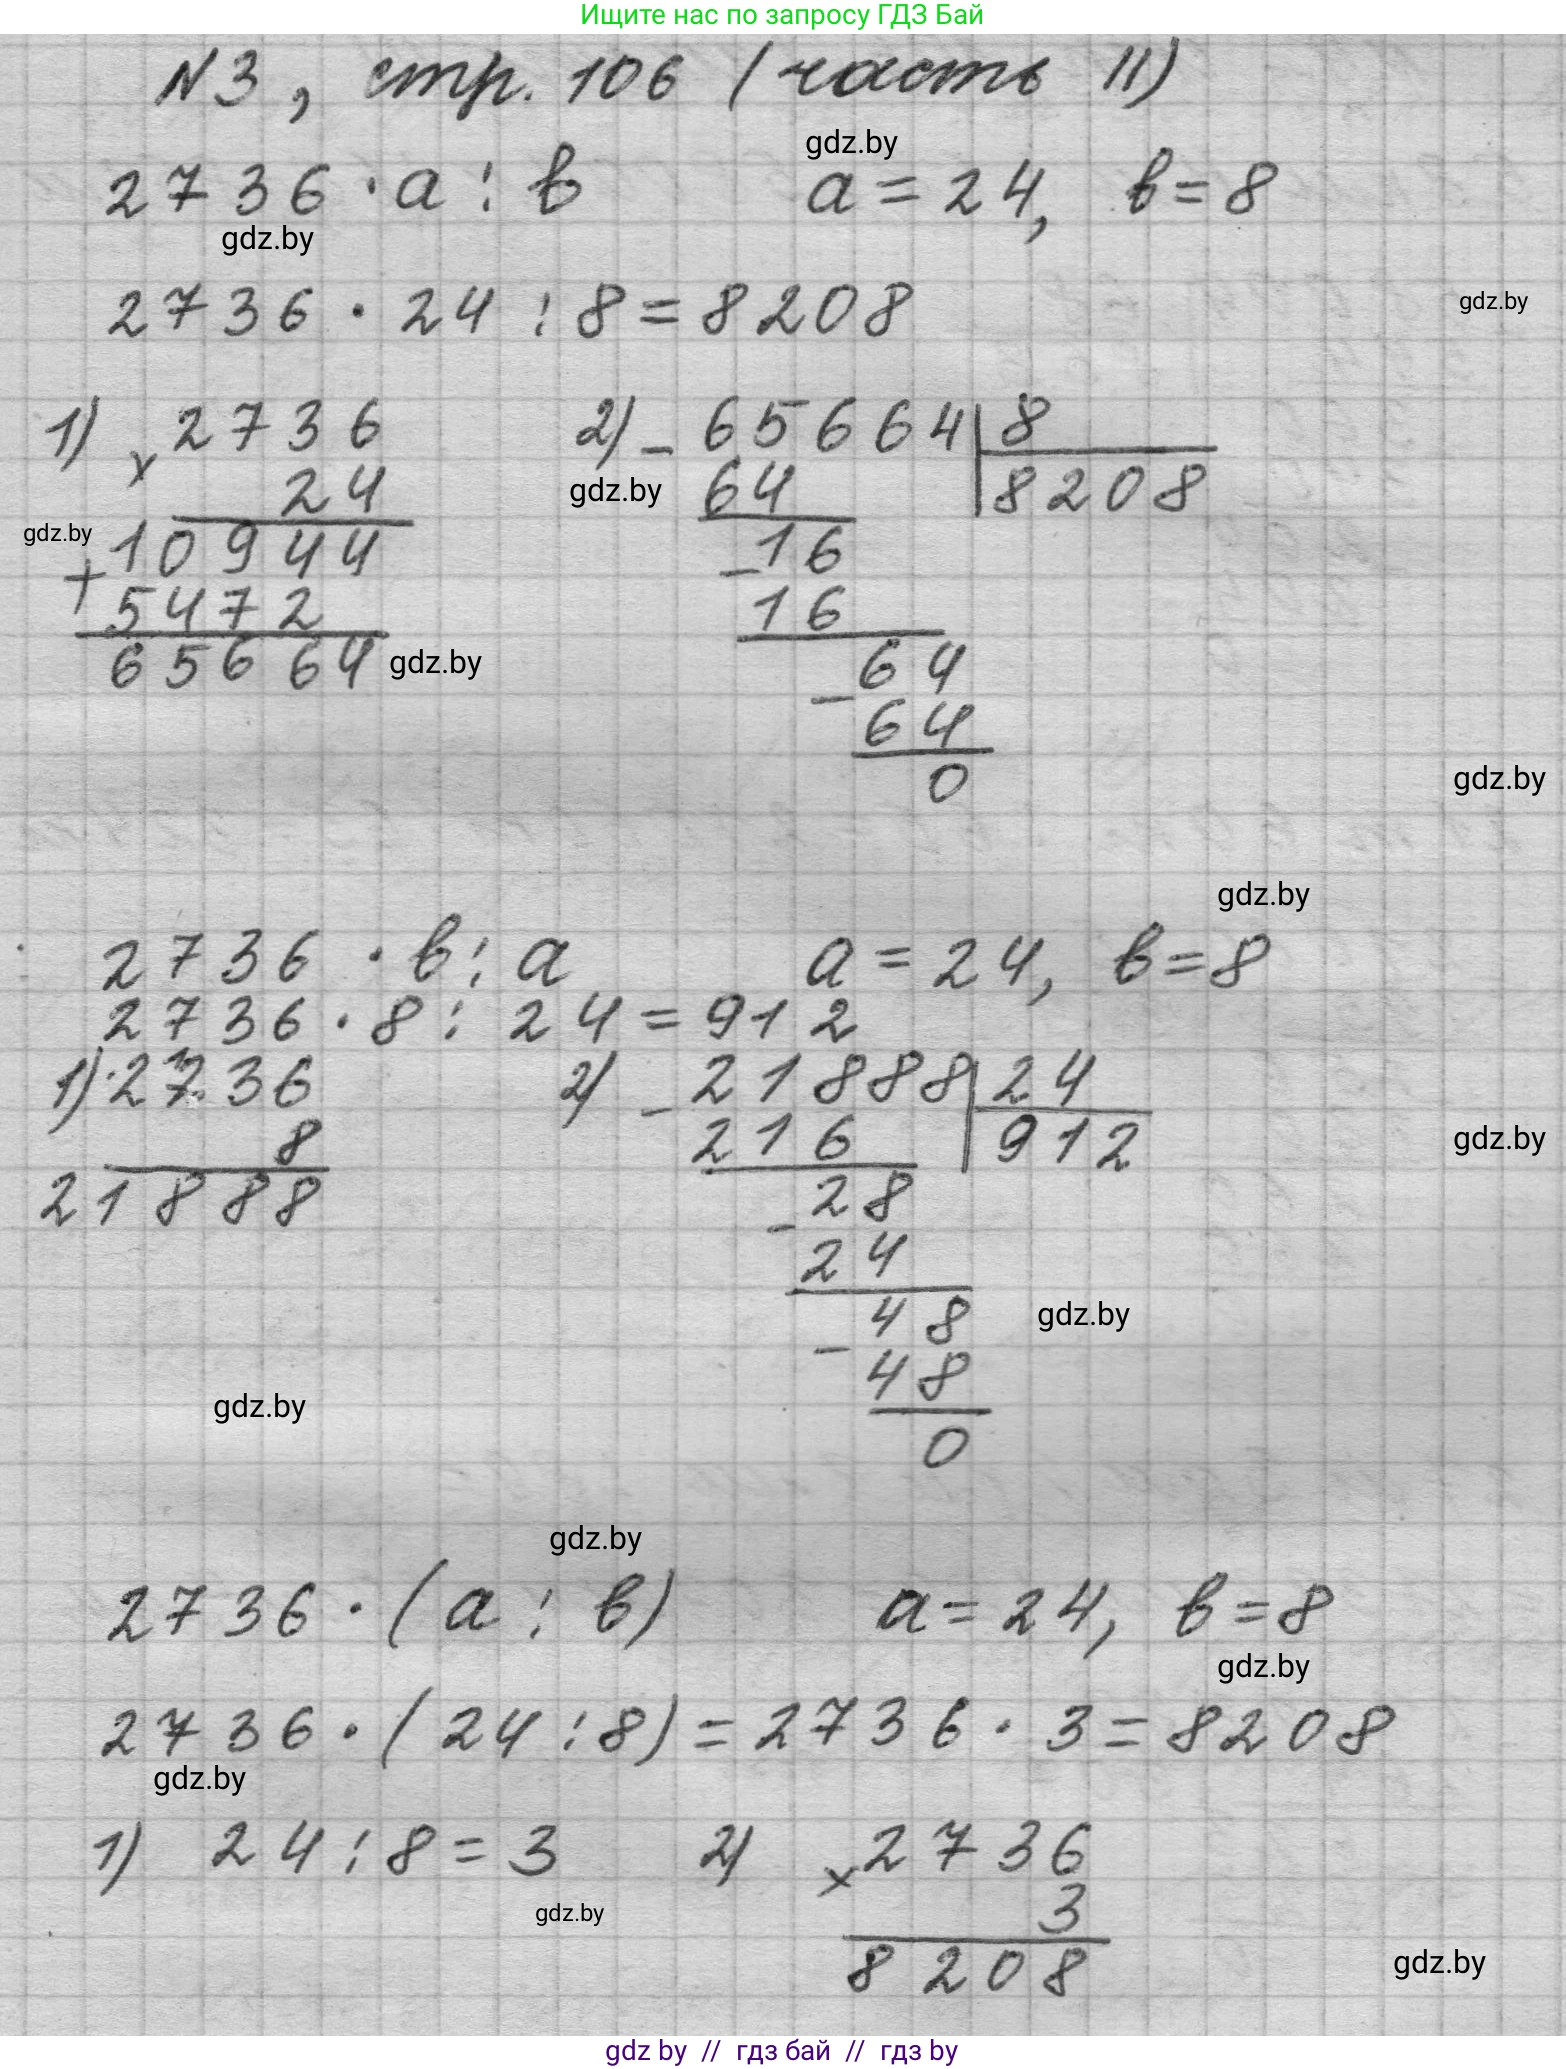 Ищите нас по запросу ГДЗ Бай
N3, стр. 106 (часть II)
gdz.by
2736 · a : b a = 24, b = 8
gdz.by
2736 · 24 : 8 = 8208
gdz.by
1) × 2736 2) - 65664 | 8
24 64 8208
gdz.by
gdz.by
+ 10944 - 16
5472 16
65664 64
gdz.by
- 64
0
gdz.by
gdz.by
2736 · b : a a = 24, b = 8
2736 · 8 : 24 = 912
1) 2736 2) - 21888 | 24
8 216 912
gdz.by
21888 - 28
24
48
gdz.by
- 48
gdz.by
0
gdz.by
2736 · (a : b) a = 24, b = 8
gdz.by
2736 · (24 : 8) = 2736 · 3 = 8208
gdz.by
1) 24 : 8 = 3 2) × 2736
3
gdz.by
8208
gdz.by
gdz by // гдз бай // гдз by